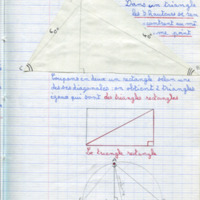 Dans un triangle
les 3 hauteurs se ren
contrent au mê
me point
Coupons en deux un rectangle selon une
des diagonales : on obtient 2 triangles
égaux qui sont des triangles rectangles
Le triangle rectangle